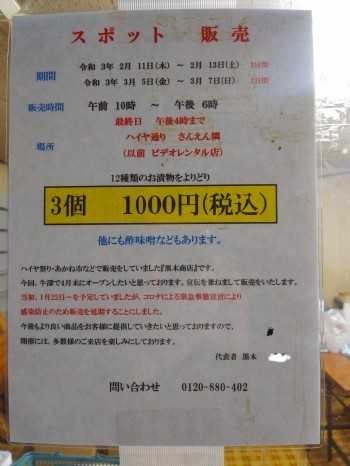 スポット 販売
期間 令和 3年 2月 11日(木) ～ 2月 13日(土) 3日間
令和 3年 3月 5日(金) ～ 3月 7日(日) 3日間
販売時間 午前 10時 ～ 午後 6時
最終日 午後4時まで
場所 ハイヤ通り さんえん隣
(以前 ビデオレンタル店)
12種類のお漬物をよりどり
3個 1000円(税込)
他にも酢味噌などもあります。
ハイヤ祭り・あかね市などで販売をしていました『黒木商店』です。
今回、牛深で4月末にオープンしたいと思っております。宣伝を兼ねまして販売をいたします。
当初、1月22日～を予定していましたが、コロナによる緊急事態宣言により
感染防止のため販売を延期することにしました。
今後もより良い商品をお客様に提供していきたいと思っておりますので、
開催には、多数様のご来店を楽しみにしております。
代表者 黒木
問い合わせ 0120-880-402